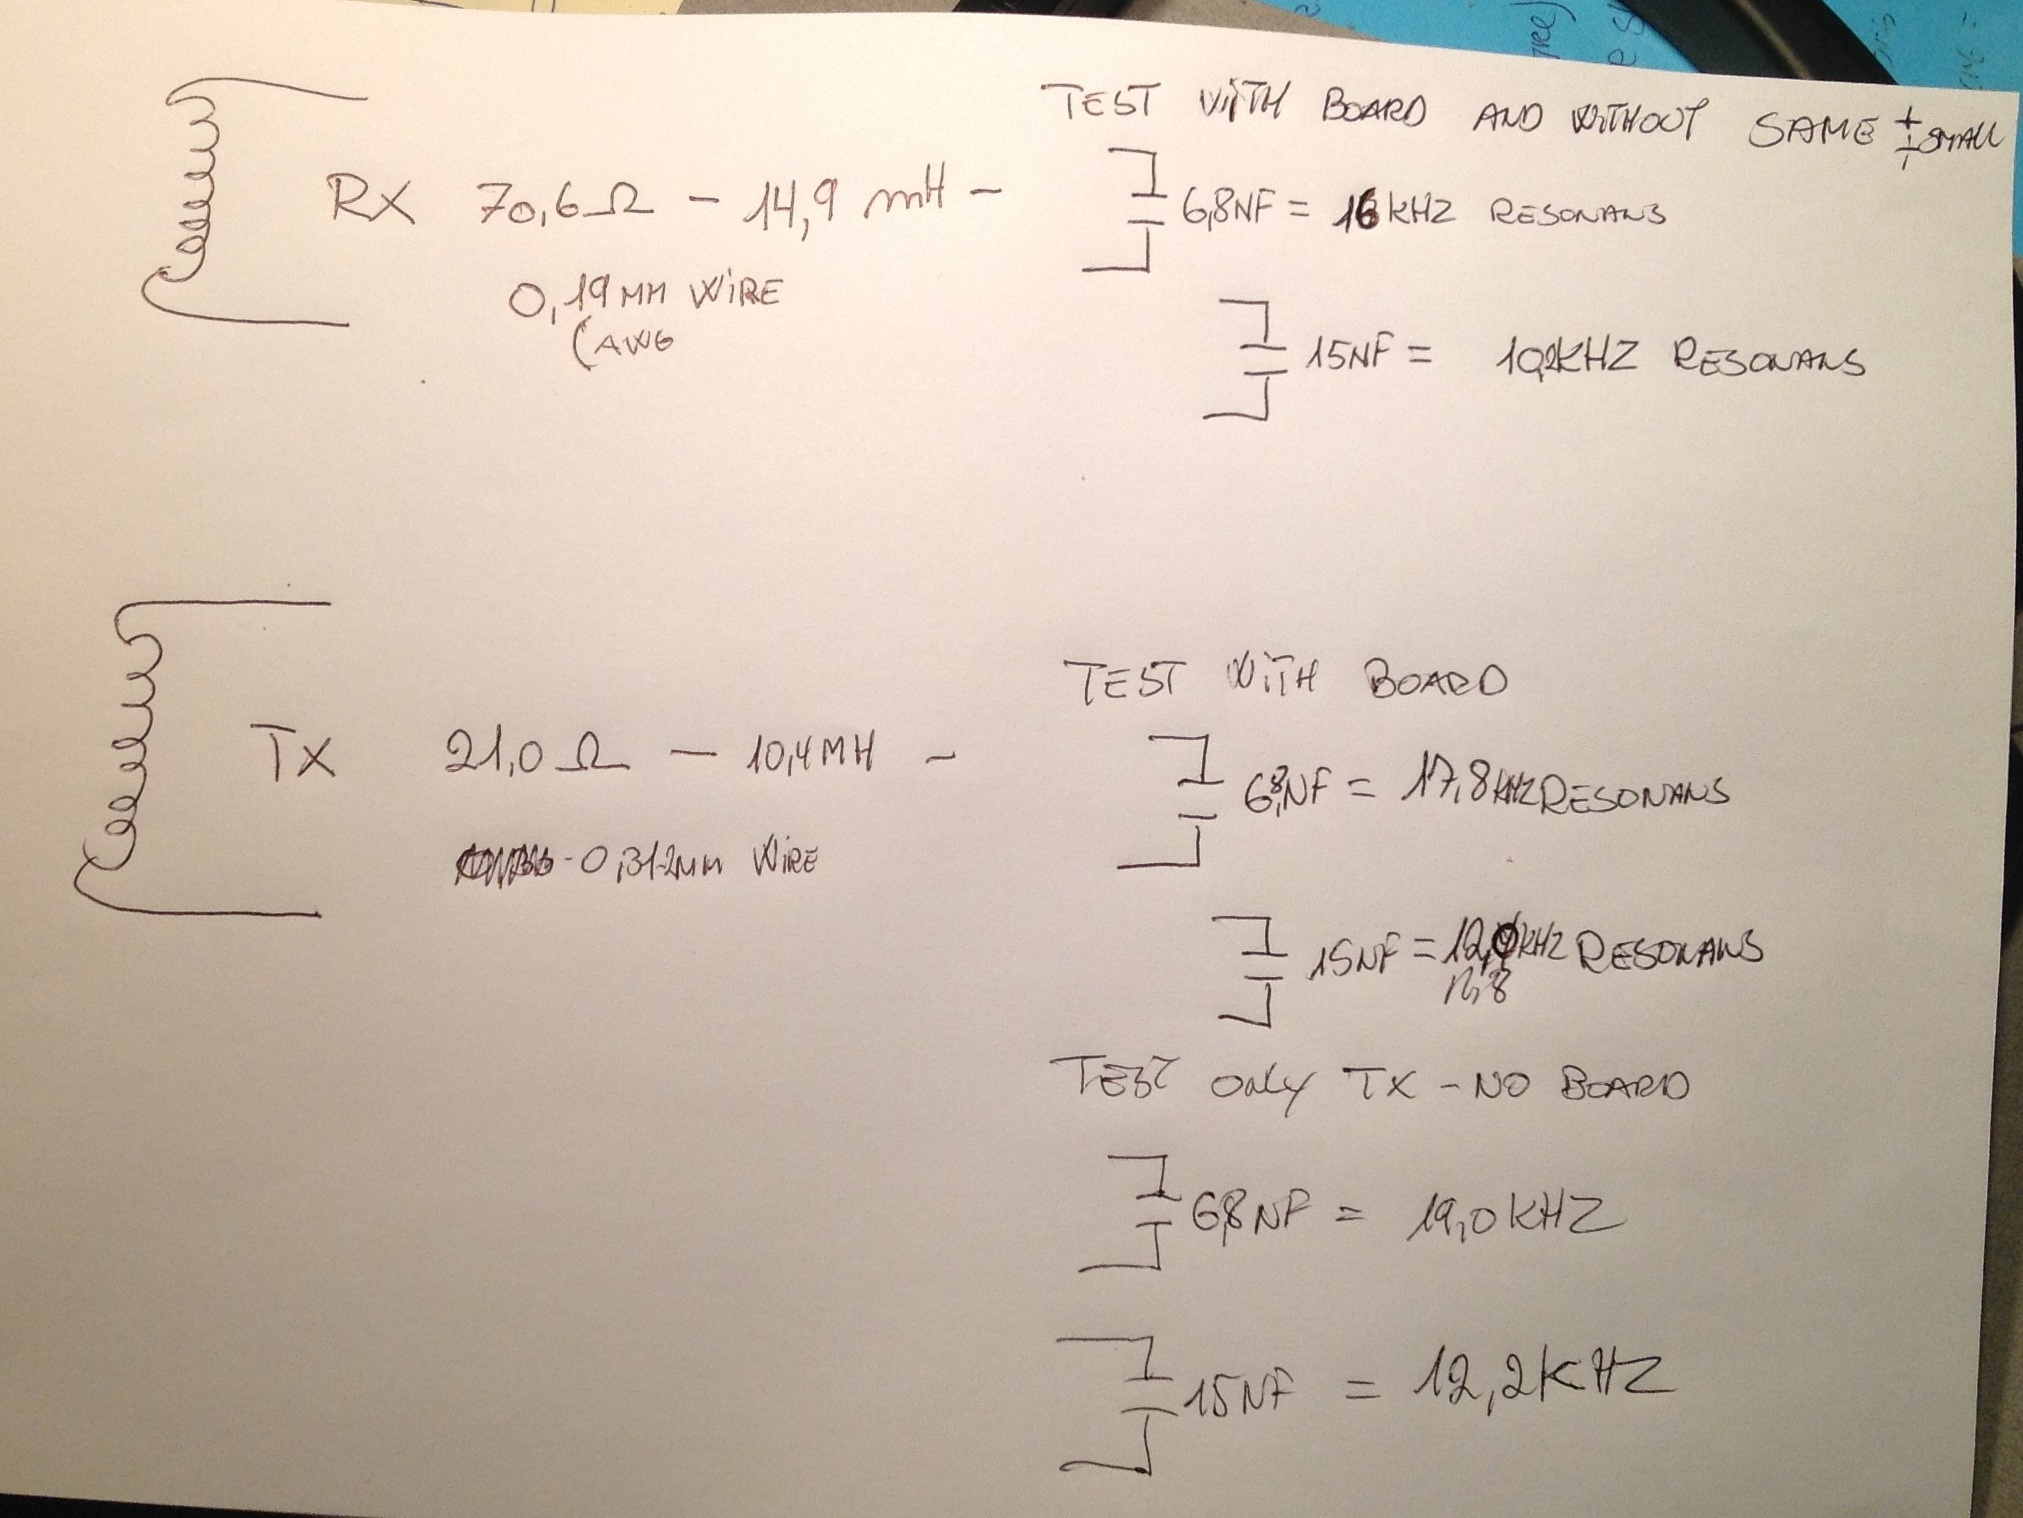 TEST WITH BOARD AND WITHOUT SAME ± SMALL
RX 70,6Ω - 14,9 mH -
6,8NF = 16KHZ RESONANS
0,19MM WIRE
(AWG
15NF = 10,2KHZ RESONANS
TEST WITH BOARD
TX 21,0Ω - 10,4MH -
6,8NF = 17,8KHZ RESONANS
-0,312MM WIRE
15NF = 12,0KHZ RESONANS
TEST ONLY TX - NO BOARD
6,8NF = 19,0KHZ
15NF = 12,2KHZ